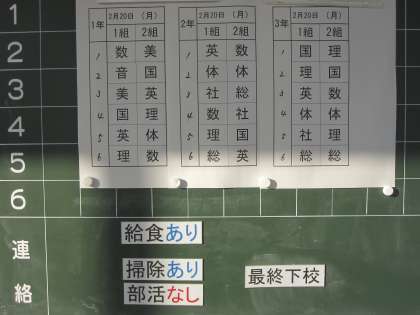 1
2
3
4
5
6
連絡
1年 2月20日 (月)
1組 2組
1 数 美
2 音 国
3 美 英
4 国 理
5 英 体
6 理 数
2年 2月20日 (月)
1組 2組
1 英 数
2 体 体
3 社 総
4 数 社
5 理 国
6 総 英
3年 2月20日 (月)
1組 2組
1 国 理
2 理 国
3 英 数
4 体 体
5 社 理
6 総 総
給食あり
掃除あり
部活なし
最終下校